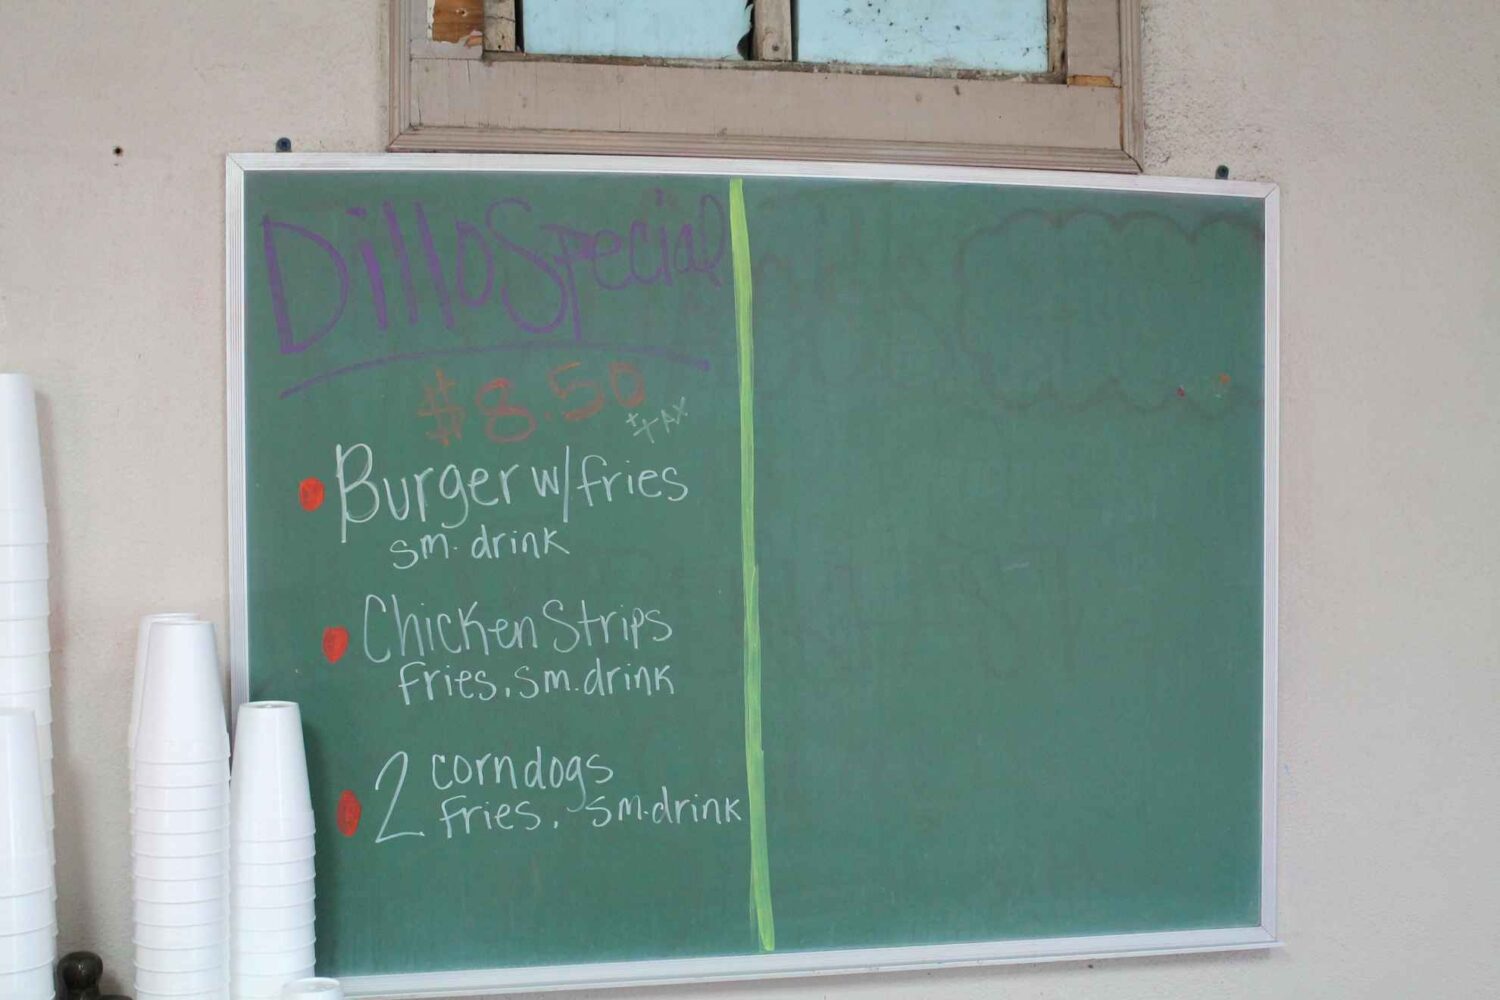 Dillo Special
$8.50
+TAX
Burger w/fries
sm. drink
Chicken Strips
fries. sm. drink
2 corndogs
fries. sm. drink